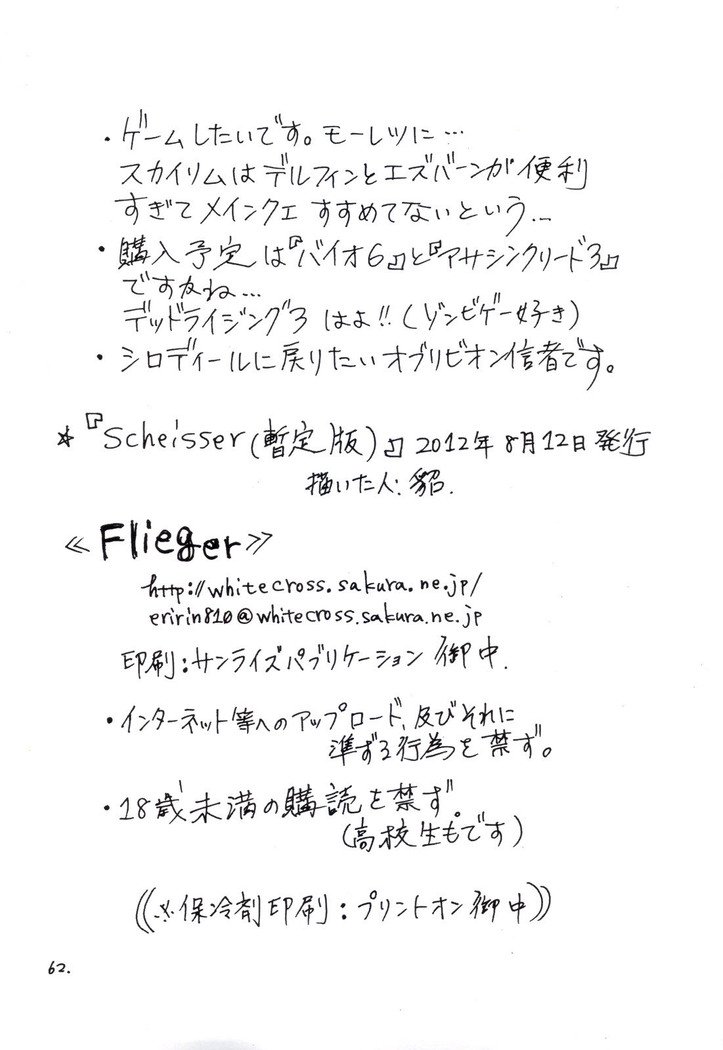 ・ゲームしたいです。モーレツに…
スカイリムはデルフィンとエズバーンが便利
すぎてメインクエ すすめてないという…
・購入予定は『バイオ6』と『アサシンクリード3』
ですかね…
デッドライジング3 はよ!!(ゾンビゲー好き)
・シロディールに戻りたいオブリビオン信者です。
☆『Scheisser(暫定版)』2012年8月12日発行
描いた人:貂.
≪Flieger≫
http://whitecross.sakura.ne.jp/
eririn810@whitecross.sakura.ne.jp
印刷:サンライズパブリケーション 御中.
・インターネット等へのアップロード、及びそれに
準ずる行為を禁ず。
・18歳未満の購読を禁ず
(高校生もです)
((※保冷剤印刷:プリントオン御中))
62.